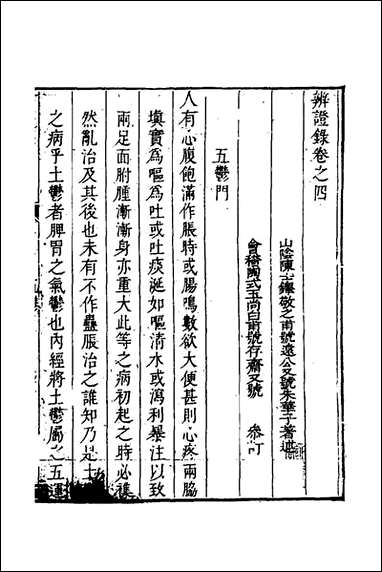 辨證錄卷之四
山陰陳士鐸敬之甫號遠公又號朱華子著述
會稽陶式玉尚白甫號存齋又號 參訂
五鬱門
人有心腹飽滿作脹時或腸鳴數欲大便甚則心疼兩脇
填實為嘔為吐或吐痰涎如嘔清水或瀉利暴注以致
兩足面胕腫漸漸身亦重大此等之病初起之時必雜
然亂治及其後也未有不作蠱脹治之誰知乃是土鬱
之病乎土鬱者脾胃之氣鬱也內經將土鬱屬之五運